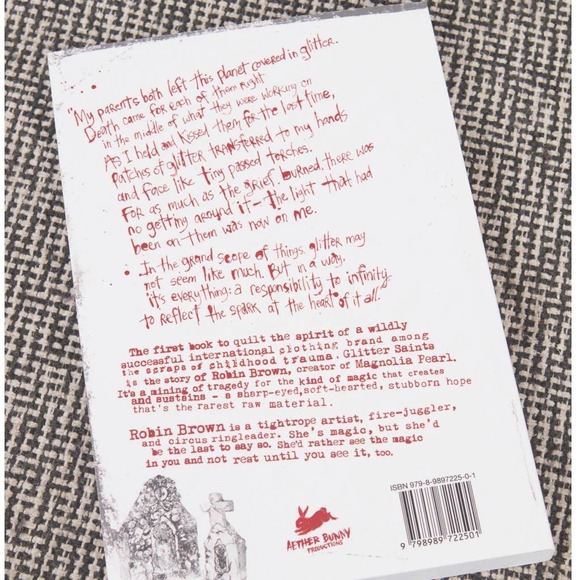 "My parents both left this planet covered in glitter.
Death came for each of them right
in the middle of what they were working on
As I held and kissed them for the last time,
patches of glitter transferred to my hands
and face like tiny passed torches.
For as much as the grief burned, there was
no getting around it - the light that had
been on them was now on me.
• In the grand scope of things, glitter may
not seem like much. But in a way,
it's everything: a responsibility to infinity
to reflect the spark at the heart of it all."
The first book to quilt the spirit of a wildly
successful international clothing brand among
the scraps of childhood trauma. Glitter Saints
is the story of Robin Brown, creator of Magnolia Pearl.
It's a mining of tragedy for the kind of magic that creates
and sustains - a sharp-eyed, soft-hearted, stubborn hope
that's the rarest raw material.
Robin Brown is a tightrope artist, fire-juggler,
and circus ringleader. She's magic, but she'd
be the last to say so. She'd rather see the magic
in you and not rest until you see it, too.
ISBN 979-8-9897225-0-1
9 798989 722501
AETHER BUNNY
PRODUCTIONS